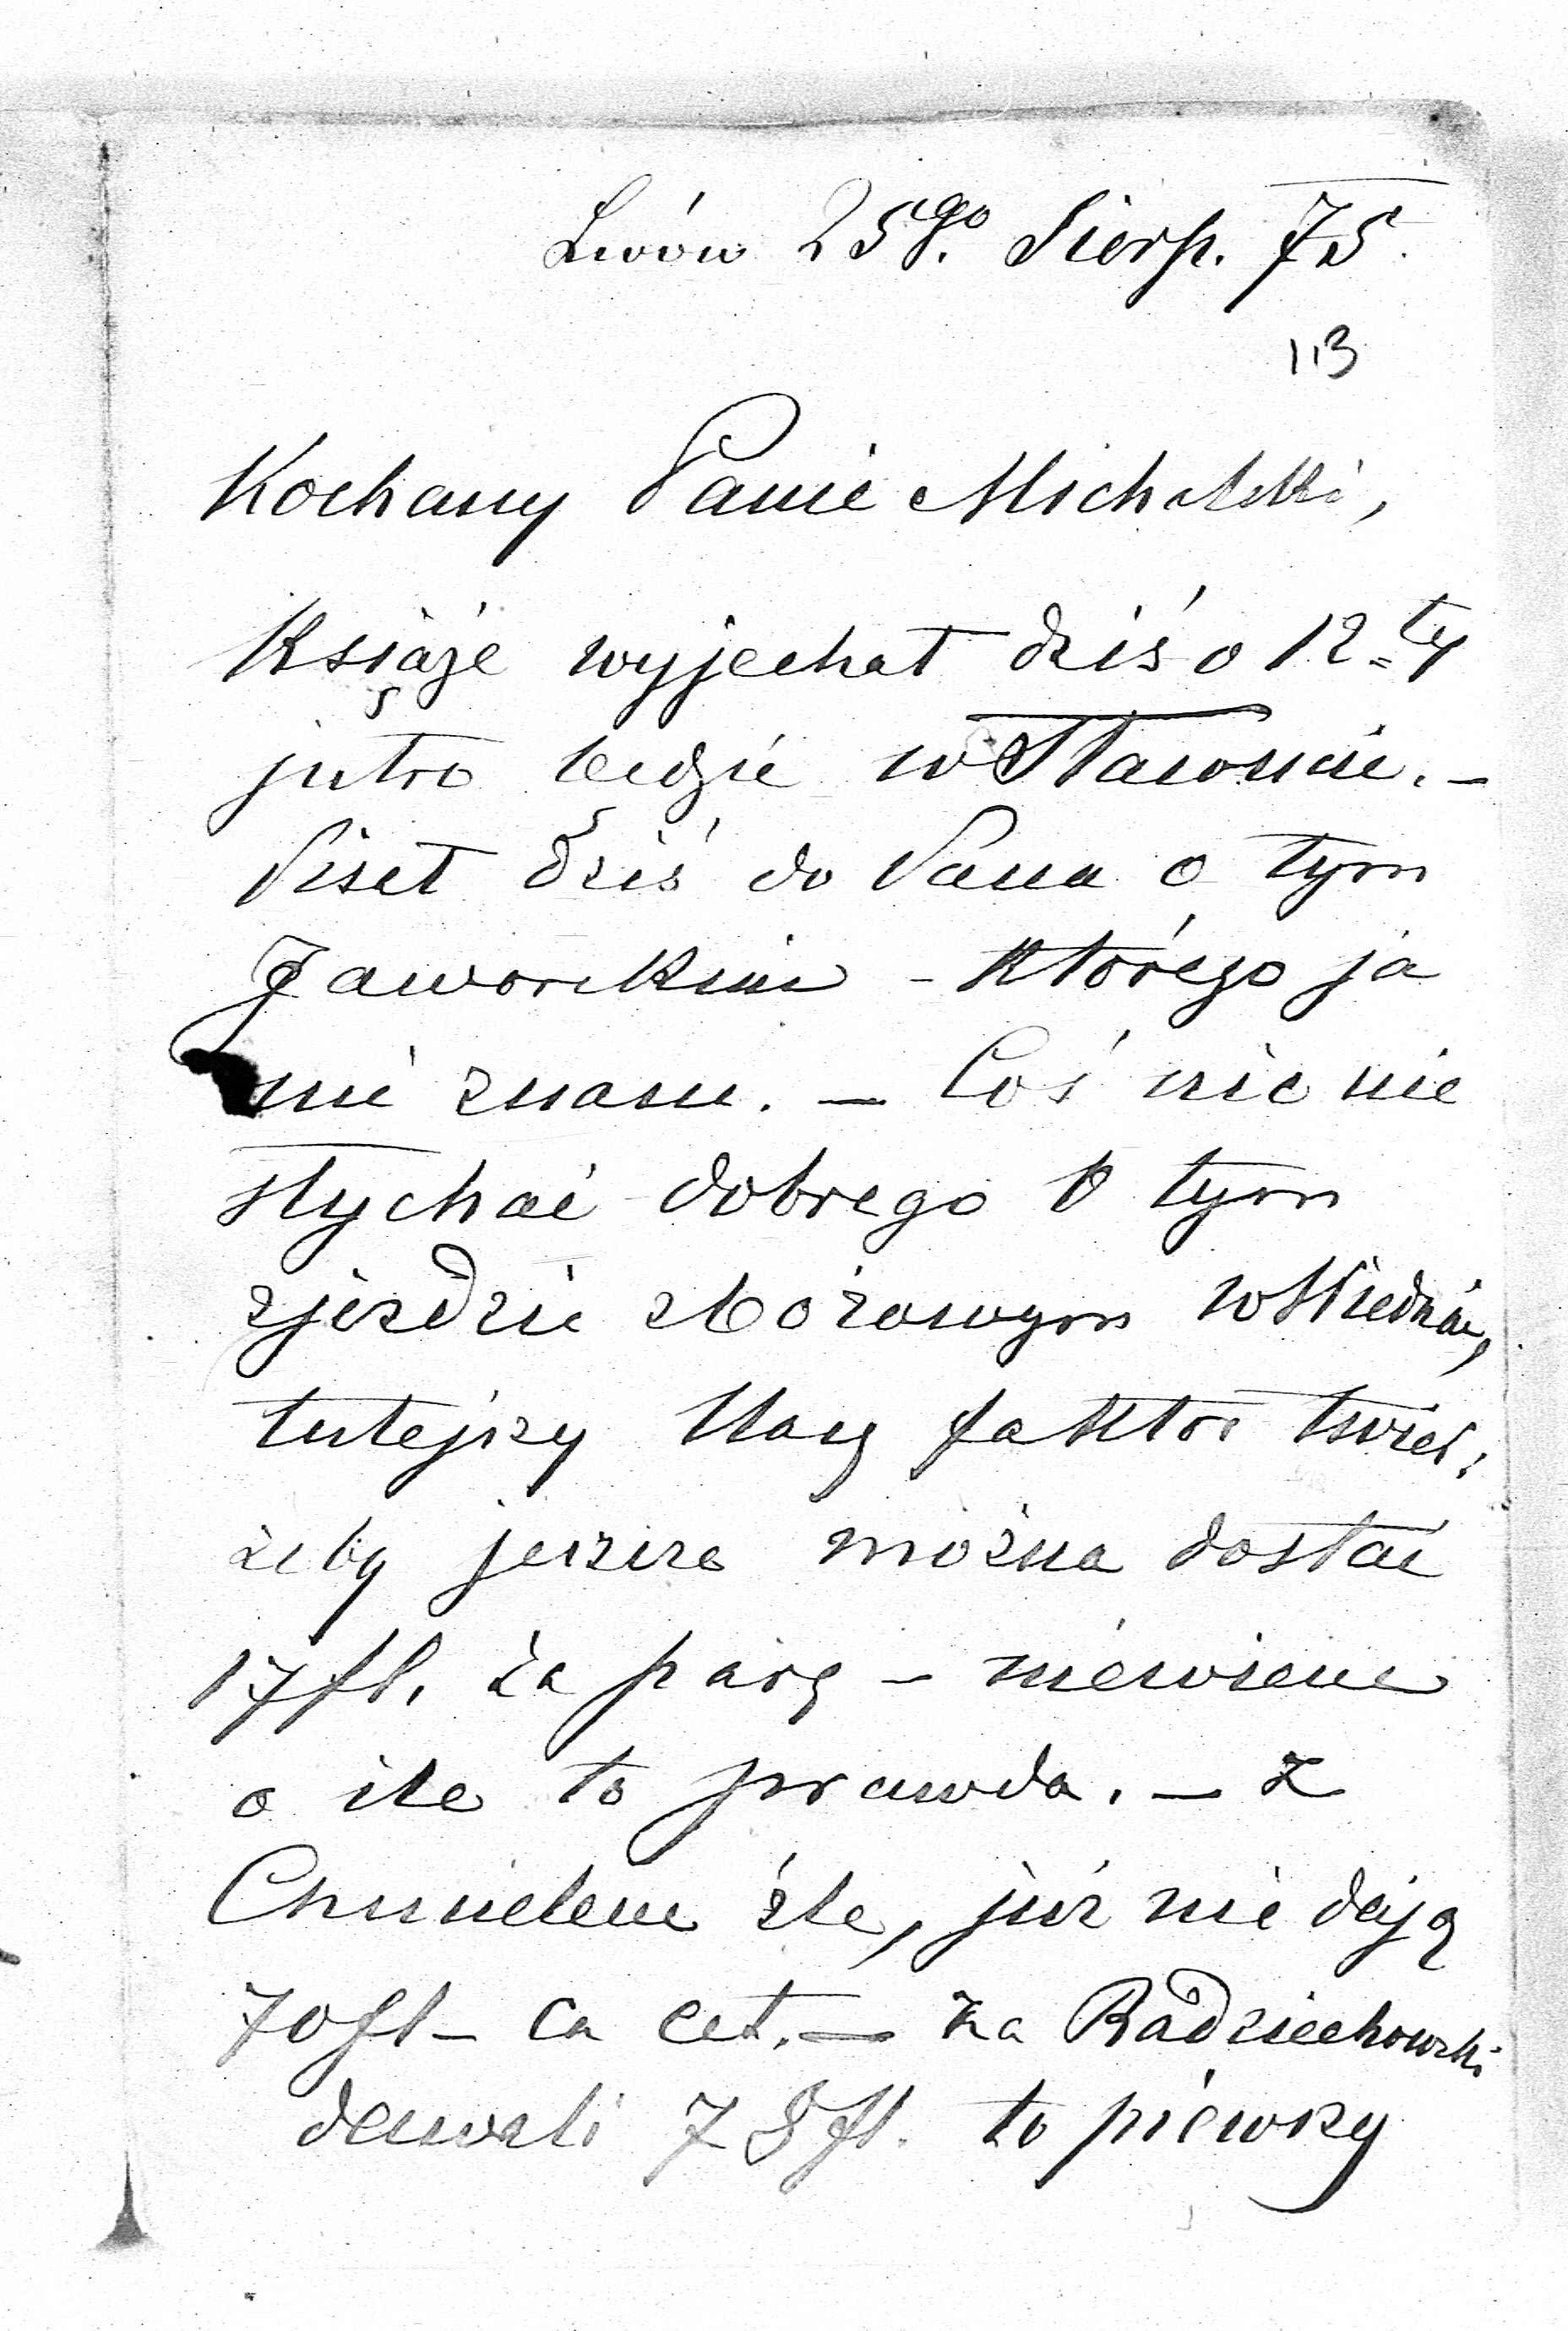 Lwów 25go. Sierp. 75.
113
Kochany Panie Michalski,
Książe wyjechał dziś o 12=ty
jutro będzie w Sławucie. –
Pisał dziś do Pana o tym
Jaworskim – którego ja
nie znam. – Coś nic nie
słychać dobrego o tym
zjeździe zbożowym w Wiedniu,
tutejszy Stary faktor twier:
żeby jeszcze można dostać
17 fl. za parę – niewiem
o ile to prawda. – Z
Chmielem źle, już nie dają
70 fl – Ca cet. – za Radziechowski
dawali 78 fl. to piewszy